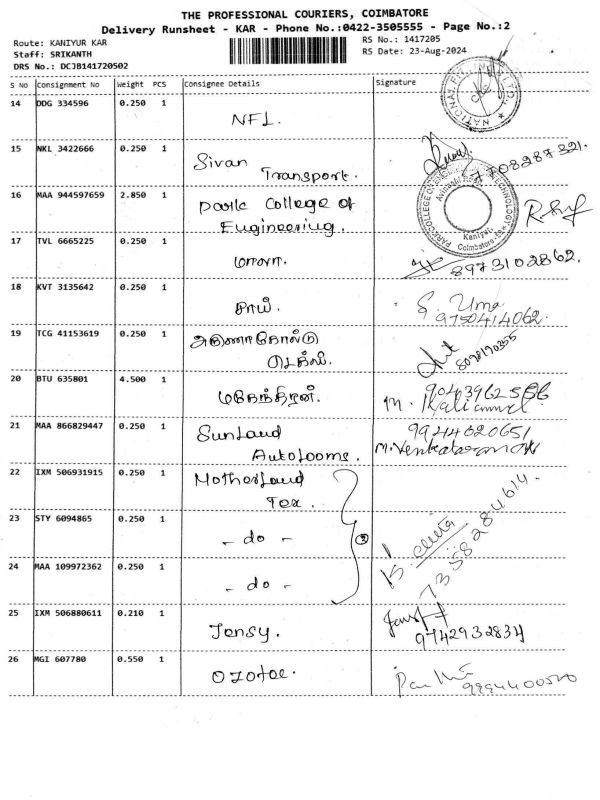 THE PROFESSIONAL COURIERS, COIMBATORE
Delivery Runsheet - KAR - Phone No.:0422-3505555 - Page No.:2
Route: KANIYUR KAR
RS No.: 1417205
Staff: SRIKANTH
RS Date: 23-Aug-2024
DRS No.: DCJB141720502
S No Consignment No Weight PCS Consignee Details Signature
14 DDG 334596 0.250 1
NFL.
15 NKL 3422666 0.250 1
Sivan
Transport.
7708287321.
16 MAA 944597659 2.850 1
College of
Engineering.
17 TVL 6665225 0.250 1
8973102862.
18 KVT 3135642 0.250 1
சாய்.
S. Uma
9750414062.
19 TCG 41153619 0.250 1
20 BTU 635801 4.500 1
மகேந்திரன்.
M.
21 MAA 866829447 0.250 1
Sunland
Autolooms.
9944620651
M. Venkatasramanan
22 IXM 506931915 0.250 1
Motherland
Tex.
23 STY 6094865 0.250 1
- do -
24 MAA 109972362 0.250 1
- do -
7358284614.
25 IXM 506880611 0.210 1
Jensy.
9742932834
26 MGI 607780 0.550 1